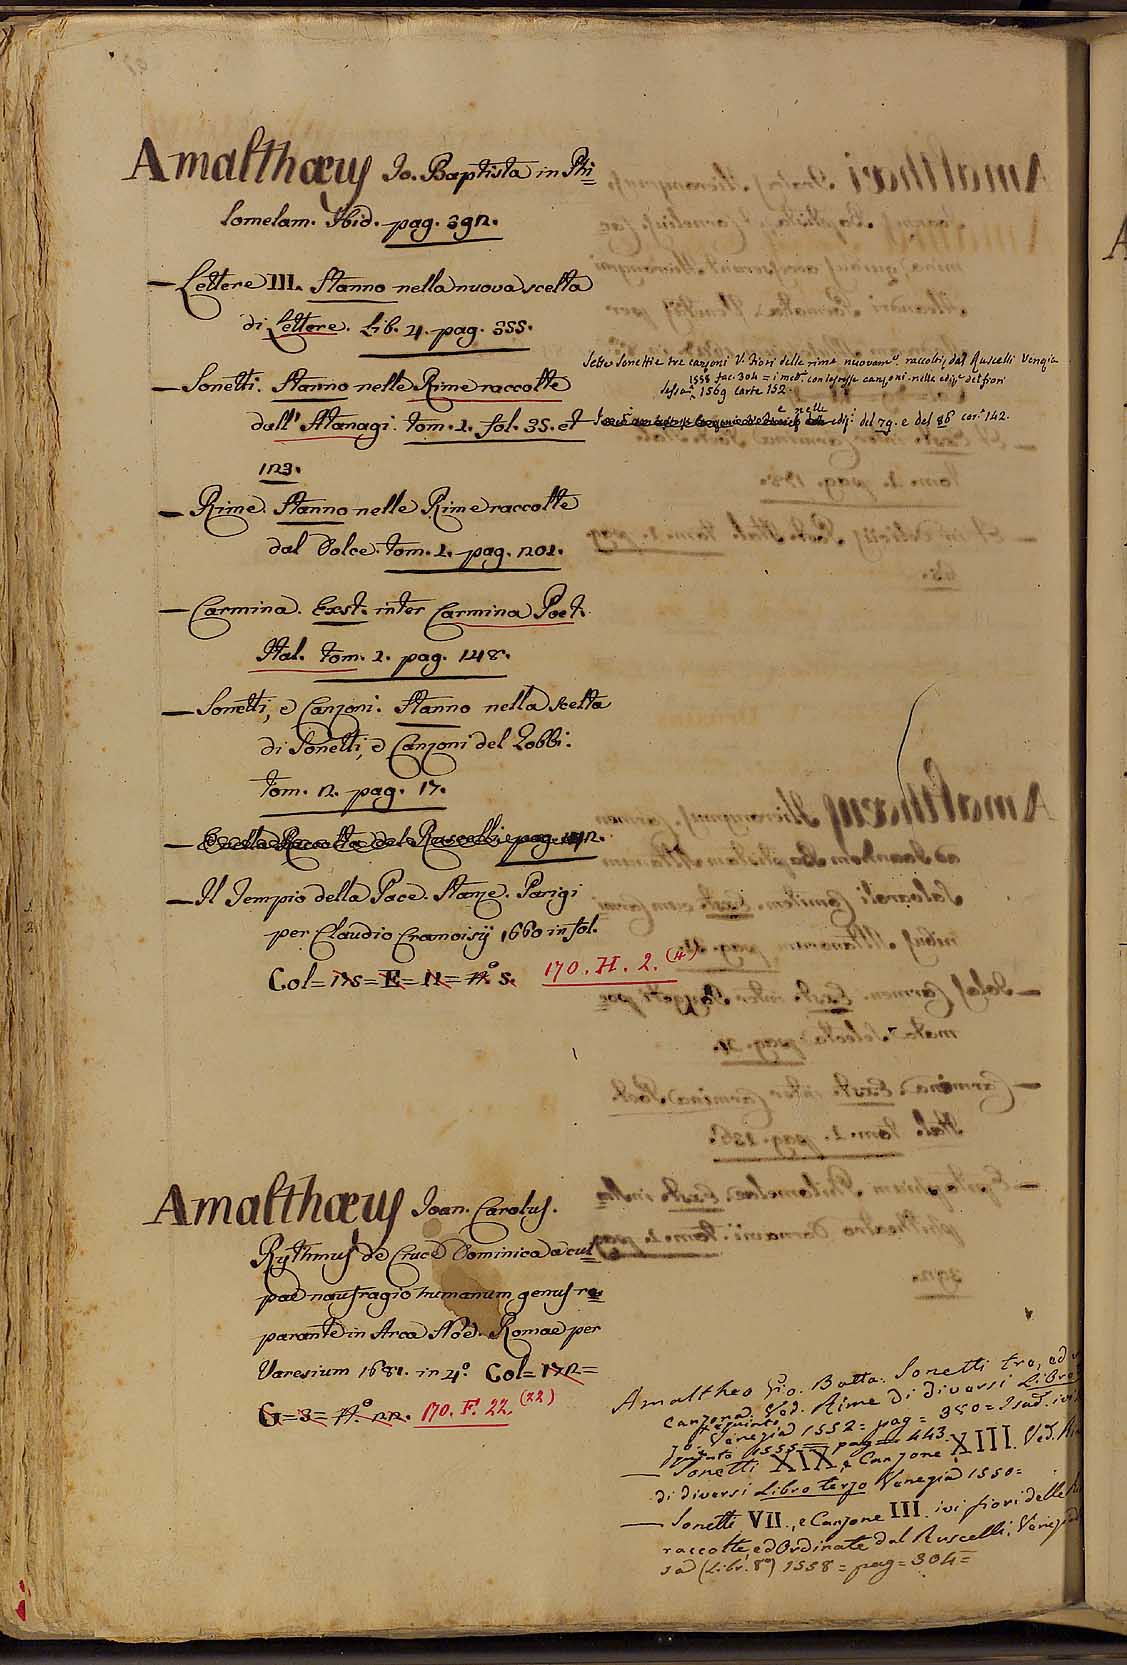 Amalthæus Jo. Baptista in Phi=
lomelam. Ibid. pag. 392.
— Lettere III. Stanno nella nuova scelta
di Lettere. Lib. 4. pag. 355.
— Sonetti. Stanno nelle Rime raccolte
dall' Atanagi. tom. 1. fol. 35. et
123.
Sette Sonetti e tre canzoni V. Fiori delle rime nuovam.e raccolti, dal Ruscelli Venezia
1558 fac. 304 = i med.i con le stesse canzoni nella ediz.e dei fiori
1569 carte 152
e nelle ediz.i del 79. e del 86 car.e 142.
— Rime. Stanno nelle Rime raccolte
dal Dolce. tom. 1. pag. 201.
— Carmina. Exst. inter Carmina Poet.
Ital. tom. 1. pag. 148.
— Sonetti, e Canzoni. Stanno nella scelta
di Sonetti, e Canzoni del Gobbi.
tom. 2. pag. 17.
— E nella Raccolta del Ruscelli pag.
— Il Tempio della Pace. Stanze. Parigi
per Claudio Cramoisÿ 1660 in fol.
Col = 175 = E = 11 = N.o 5. 170. H. 2. (4)
Amalthæus Joan. Carolus.
Rythmus de Cruce Dominica a cul=
pae naufragio humanum genus re=
parante in Arca Noè. Romae per
Varesium 1681. in 4.o Col = 172 =
G = 3 = N.o 22. 170. F. 22. (22)
Amaltheo Gio. Batta. Sonetti tre, ed
Canzona Ved. Rime di diversi Libro
quinto Venezia 1552 = pag = 350 =
1555 = pag = 443.
— Sonetti XIX, e Canzone XIII. Ved. Ri
di diversi Libro terzo Venezia 1550 =
— Sonetti VII., e Canzone III. ivi fiori delle
raccolte, ed Ordinate dal Ruscelli, Venez
sa (Libr. 8o) 1558 = pag = 304 =